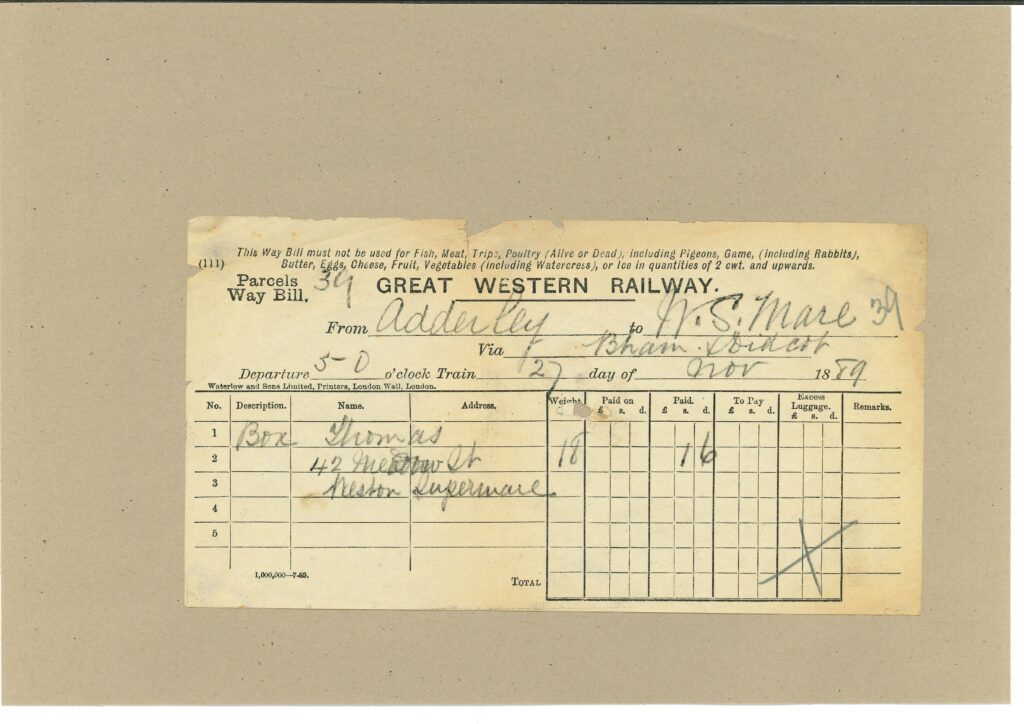 This Way Bill must not be used for Fish, Meat, Tripe, Poultry (Alive or Dead), including Pigeons, Game, (including Rabbits),
(111) Butter, Eggs, Cheese, Fruit, Vegetables (including Watercress), or Ice in quantities of 2 cwt. and upwards.
Parcels Way Bill. 39 GREAT WESTERN RAILWAY.
From Adderley to W. S. Mare 39
Via Bham & Didcot
Departure 5-0 o'clock Train 27 day of Nov 1889
Waterlow and Sons Limited, Printers, London Wall, London.
No. Description. Name. Address. Weight. Paid on £ s. d. Paid. £ s. d. To Pay £ s. d. Excess Luggage. £ s. d. Remarks.
1 Box Thomas
2 42 Meadow St 18 1 6
3 Weston Supermare
4
5
1,000,000—7-89.
TOTAL